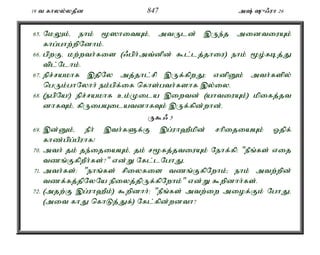 19 வ காலல்லதீன 847 அஷ் ஷுஃரா 26
65. மேலும், நாம் மூஸாவையும், அவருடன் இருந்த அனைவரையும்
காப்பாற்றினோம்.
66. பிறகு, மற்றவர்களை (ஃபிர்அவ்னின் கூட்டத்தாரை) நாம் மூழ்கடித்து
விட்டோம்.
67. நிச்சயமாக இதிலே அத்தாட்சி இருக்கிறது; எனினும் அவர்களில்
பெரும்பாலோர் நம்பிக்கை கொள்பவர்களாக இல்லை.
68. (நபியே!) நிச்சயமாக உம்முடைய இறைவன் (யாவரையும்) மிகைத்தவ
னாகவும், கிருபையுடையவனாகவும் இருக்கின்றான்.
ருகூஃ 5
69. இன்னும், நீர் இவர்களுக்கு இப்ராஹீமின் சரிதையையும் ஓதிக்
காண்பிப்பீராக!
70. அவர் தம் தந்தையையும், தம் சமூகத்தவரையும் நோக்கி: "நீங்கள் எதை
வணங்குகிறீர்கள்?" என்று கேட்டபோது,
71. அவர்கள்: "நாங்கள் சிலைகளை வணங்குகிறோம்; நாம் அவற்றின்
வணக்கத்திலேயே நிலைத்திருக்கிறோம்" என்று கூறினார்கள்.
72. (அதற்கு இப்ராஹீம்) கூறினார்: "நீங்கள் அவற்றை அழைக்கும் போது,
(அவை காது கொடுத்துக்) கேட்கின்றனவா?